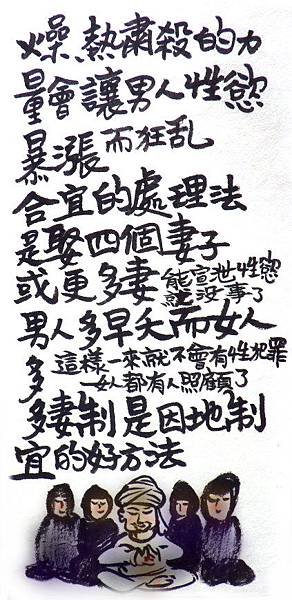 燥熱肅殺的力
量會讓男人性慾
暴漲而狂乱
合宜的處理法
是娶四個妻子
或更多妻
能宣泄性慾
就没事了
男人多早夭而女人
多
這樣一來就不會有性犯罪
女人都有人照顧了
多妻制是因地制
宜的好方法